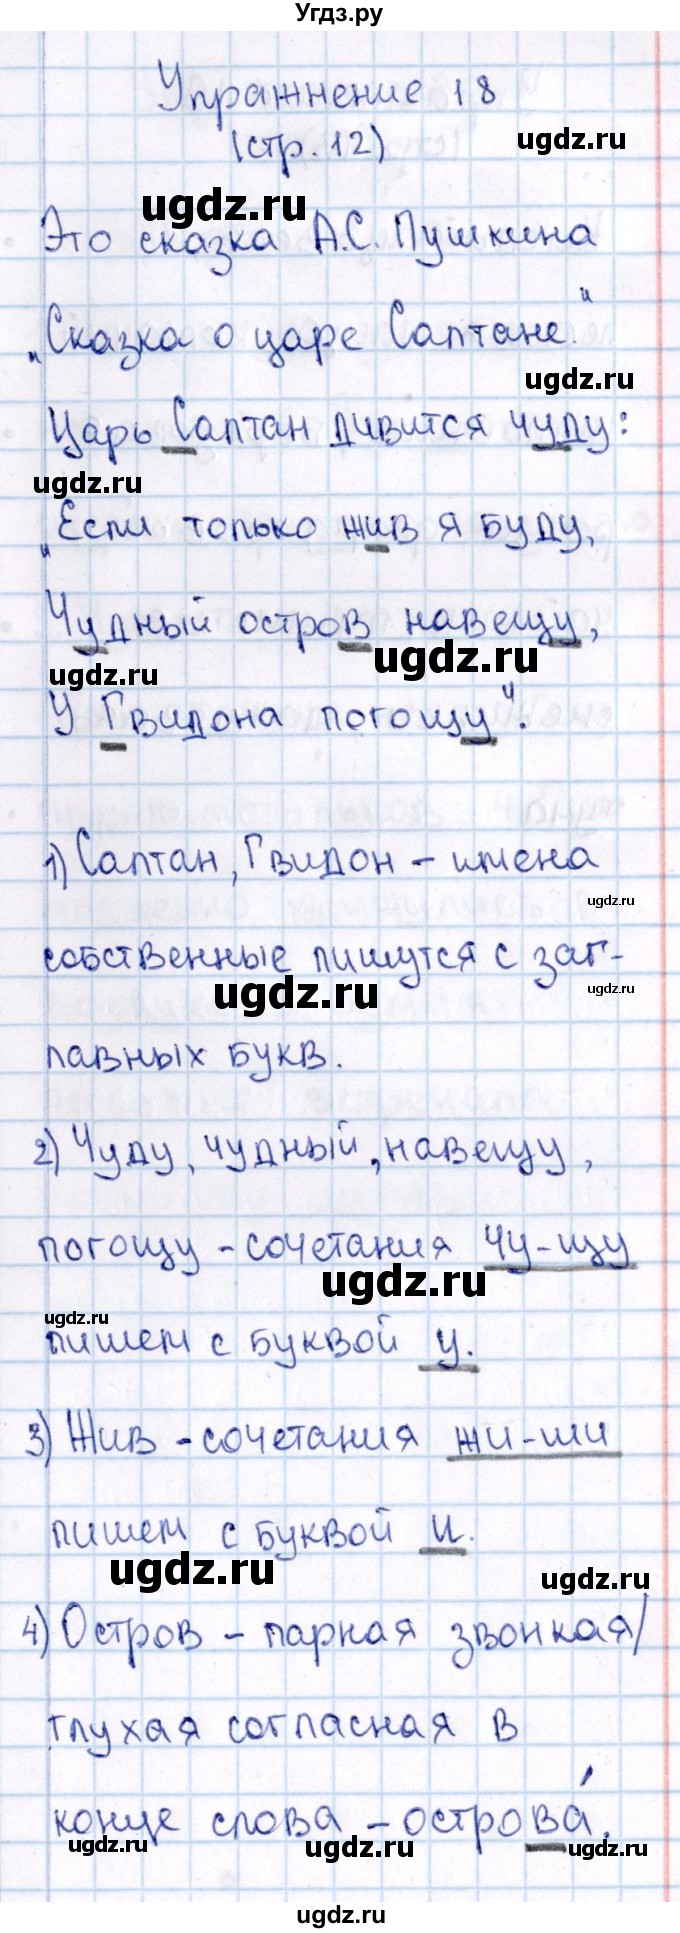 Угдз.ру
Упражнение 18
(стр. 12)
ugdz.ru
ugdz.ru
Это сказка А.С. Пушкина
„Сказка о царе Салтане."
ugdz.ru
Царь Салтан дивится чуду:
ugdz.ru
„Если только жив я буду,
Чудный остров навещу,
ugdz.ru
ugdz.ru
У Гвидона погощу".
1) Салтан, Гвидон – имена
ugdz.ru
собственные пишутся с заг-
ugdz.ru
ugdz.ru
лавных букв.
2) Чуду, чудный, навещу,
погощу – сочетания чу-щу
ugdz.ru
ugdz.ru
пишем с буквой у.
3) Жив – сочетания жи-ши
пишем с буквой и.
ugdz.ru
ugdz.ru
4) Остров – парная звонкая/
глухая согласная в
конце слова – острова́.
ugdz.ru
ugdz.ru
ugdz.ru
ugdz.ru